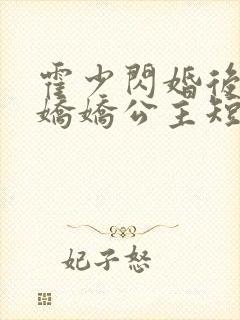 霍少閃婚後
嬌嬌公主短
妃子怒